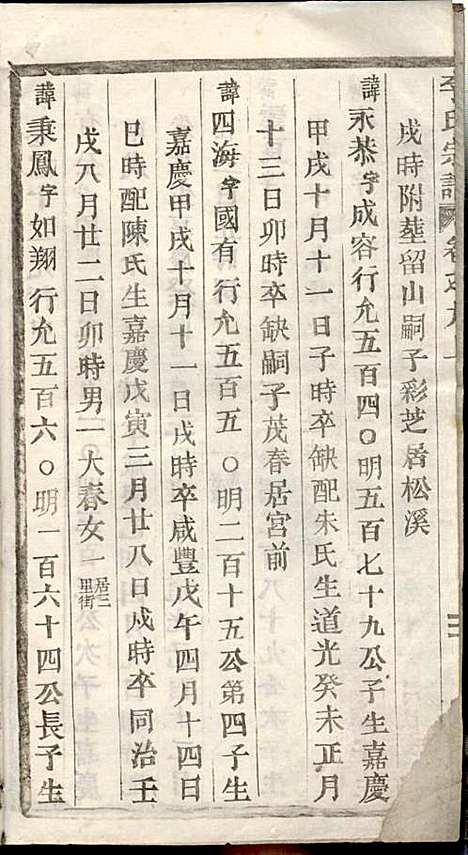 李氏宗譜
戌時附塟留山嗣子彩芝居松溪
諱永恭字成容行允五百四〇明五百七十九公子生嘉慶
甲戌十月十一日子時卒缺配朱氏生道光癸未正月
十三日卯時卒缺嗣子茂春居宮前
諱四海字國有行允五百五〇明二百十五公第四子生
嘉慶甲戌十月十一日戌時卒咸豐戊午四月十四日
巳時配陳氏生嘉慶戊寅三月廿八日戌時卒同治壬
戌八月廿二日卯時男一大春女一居三里街
諱秉鳳字如翔行允五百六〇明一百六十四公長子生